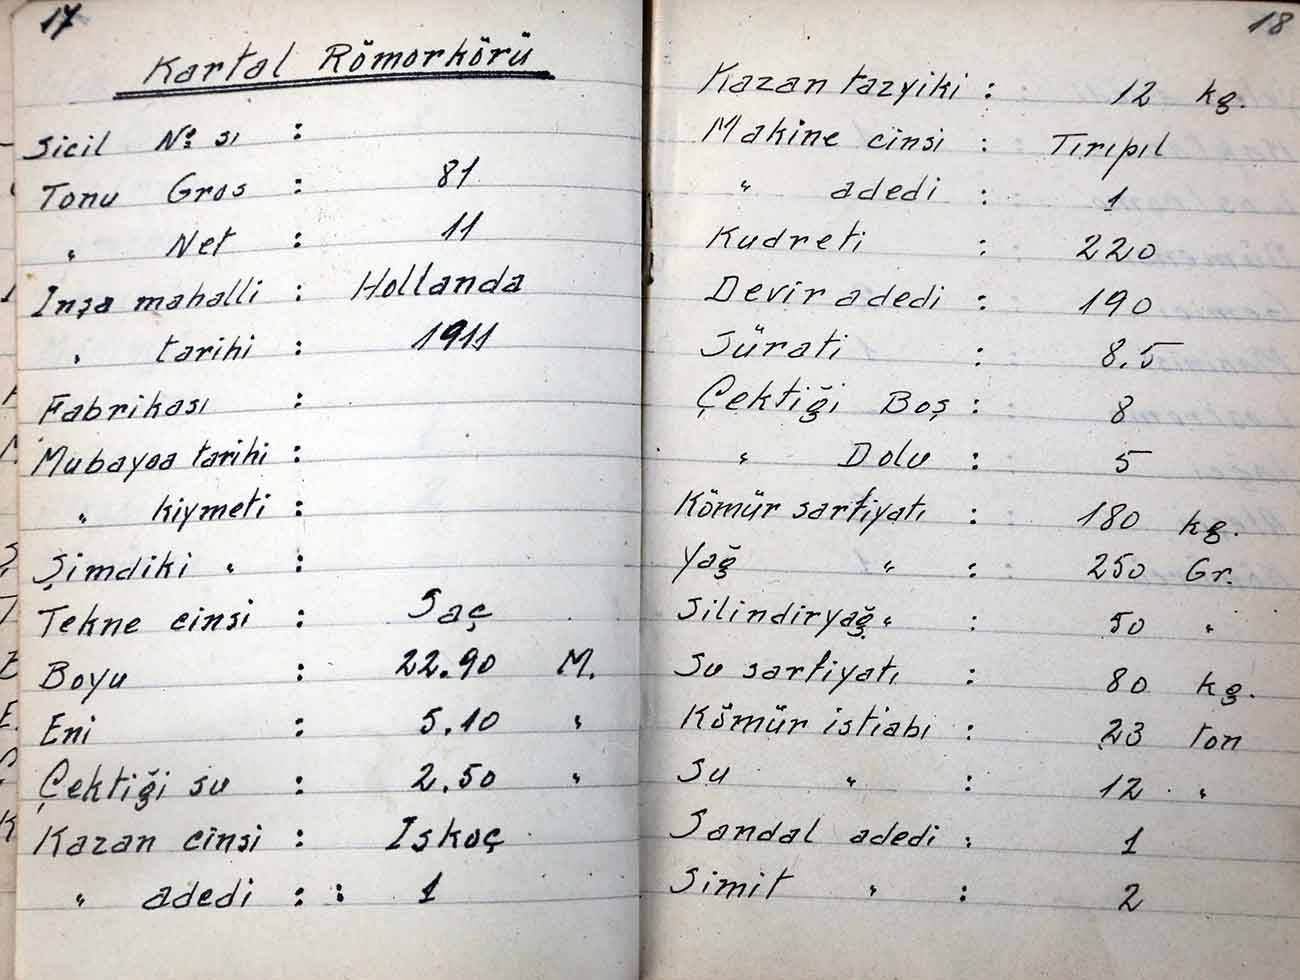 17
Kartal Römorkörü
Sicil Nº sı :
Tonu Gros : 81
" Net : 11
Inşa mahalli : Hollanda
" tarihi : 1911
Fabrikası :
Mubayaa tarihi :
" kiymeti :
Şimdiki " :
Tekne cinsi : Saç
Boyu : 22.90 M.
Eni : 5.10 "
Çektiği su : 2.50 "
Kazan cinsi : Iskoç
" adedi : : 1
18
Kazan tazyiki : 12 kg.
Makine cinsi : Tırıpıl
" adedi : 1
Kudreti : 220
Devir adedi : 190
Sürati : 8.5
Çektiği Boş : 8
" Dolu : 5
Kömür sarfiyatı : 180 kg.
Yağ " : 250 Gr.
Silindiryağ " : 50 "
Su sarfiyatı : 80 kg.
Kömür istiabı : 23 ton
Su " : 12 "
Sandal adedi : 1
Simit " : 2